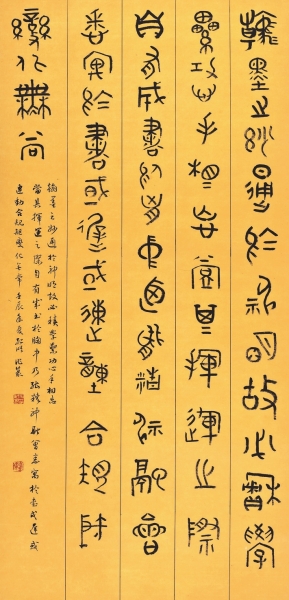 翰墨之妙通於神明故必積學
纍功心手相忘當其揮運之際
自有成書於胸中乃能精神融會
悉寓於書或遲或速動合規矩
變化無常
翰墨之妙通於神明故必積學累功心手相忘
當其揮運之際自有成書於胸中乃能精神融會悉寓於書或遲或
速動合規矩變化無常 壬辰